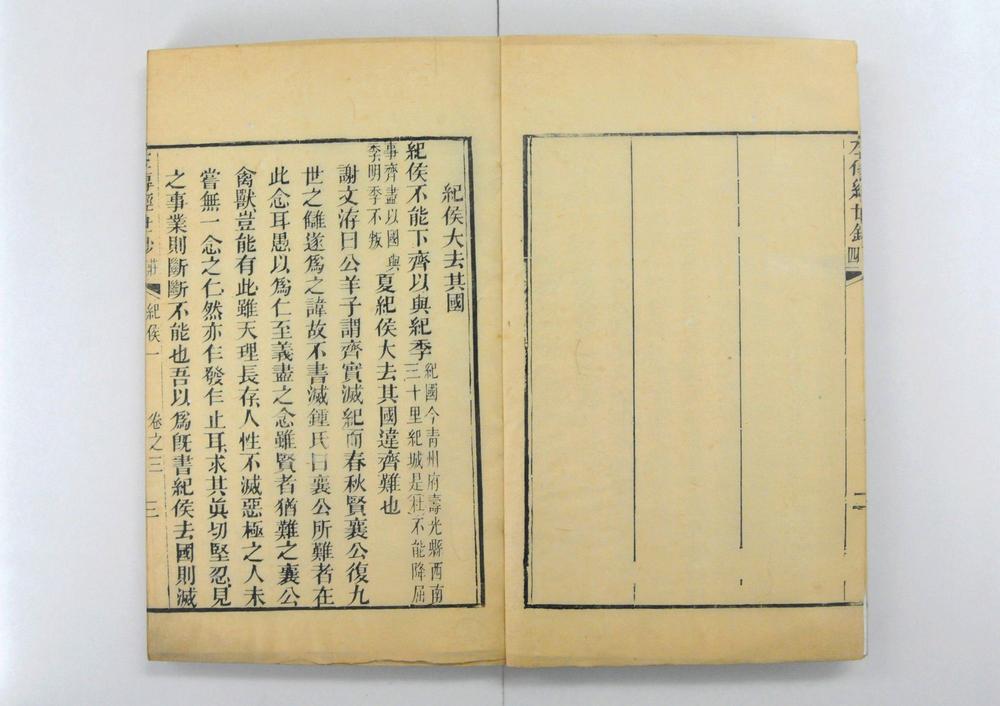 紀侯大去其國
紀侯不能下齊以與紀季
紀國今青州府壽光縣西南
三十里紀城是杜不能降屈
事齊盡以國與
季明季不叛
夏紀侯大去其國違齊難也
謝文洊曰公羊子謂齊實滅紀而春秋賢襄公復九
世之讎遂爲之諱故不書滅鍾氏曰襄公所難者在
此念耳愚以爲仁至義盡之念雖賢者猶難之襄公
禽獸豈能有此雖天理長存人性不滅惡極之人未
嘗無一念之仁然亦乍發乍止耳求其眞切堅忍見
之事業則斷斷不能也吾以爲旣書紀侯去國則滅
左傳經世鈔
莊
紀侯一
卷之三
三